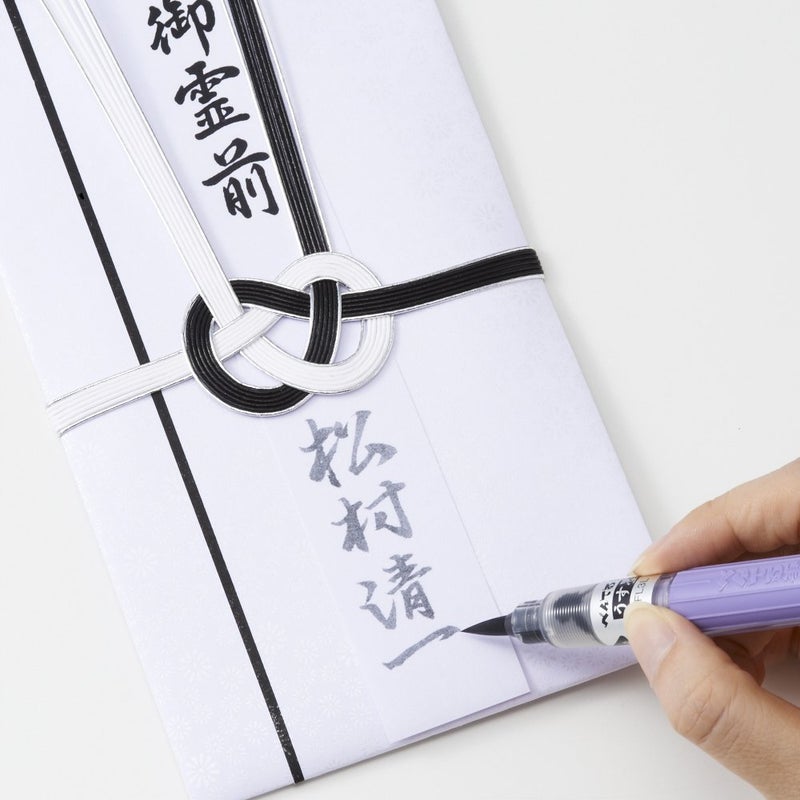 御霊前
松村清一
ぺんてる
うす
FL3L